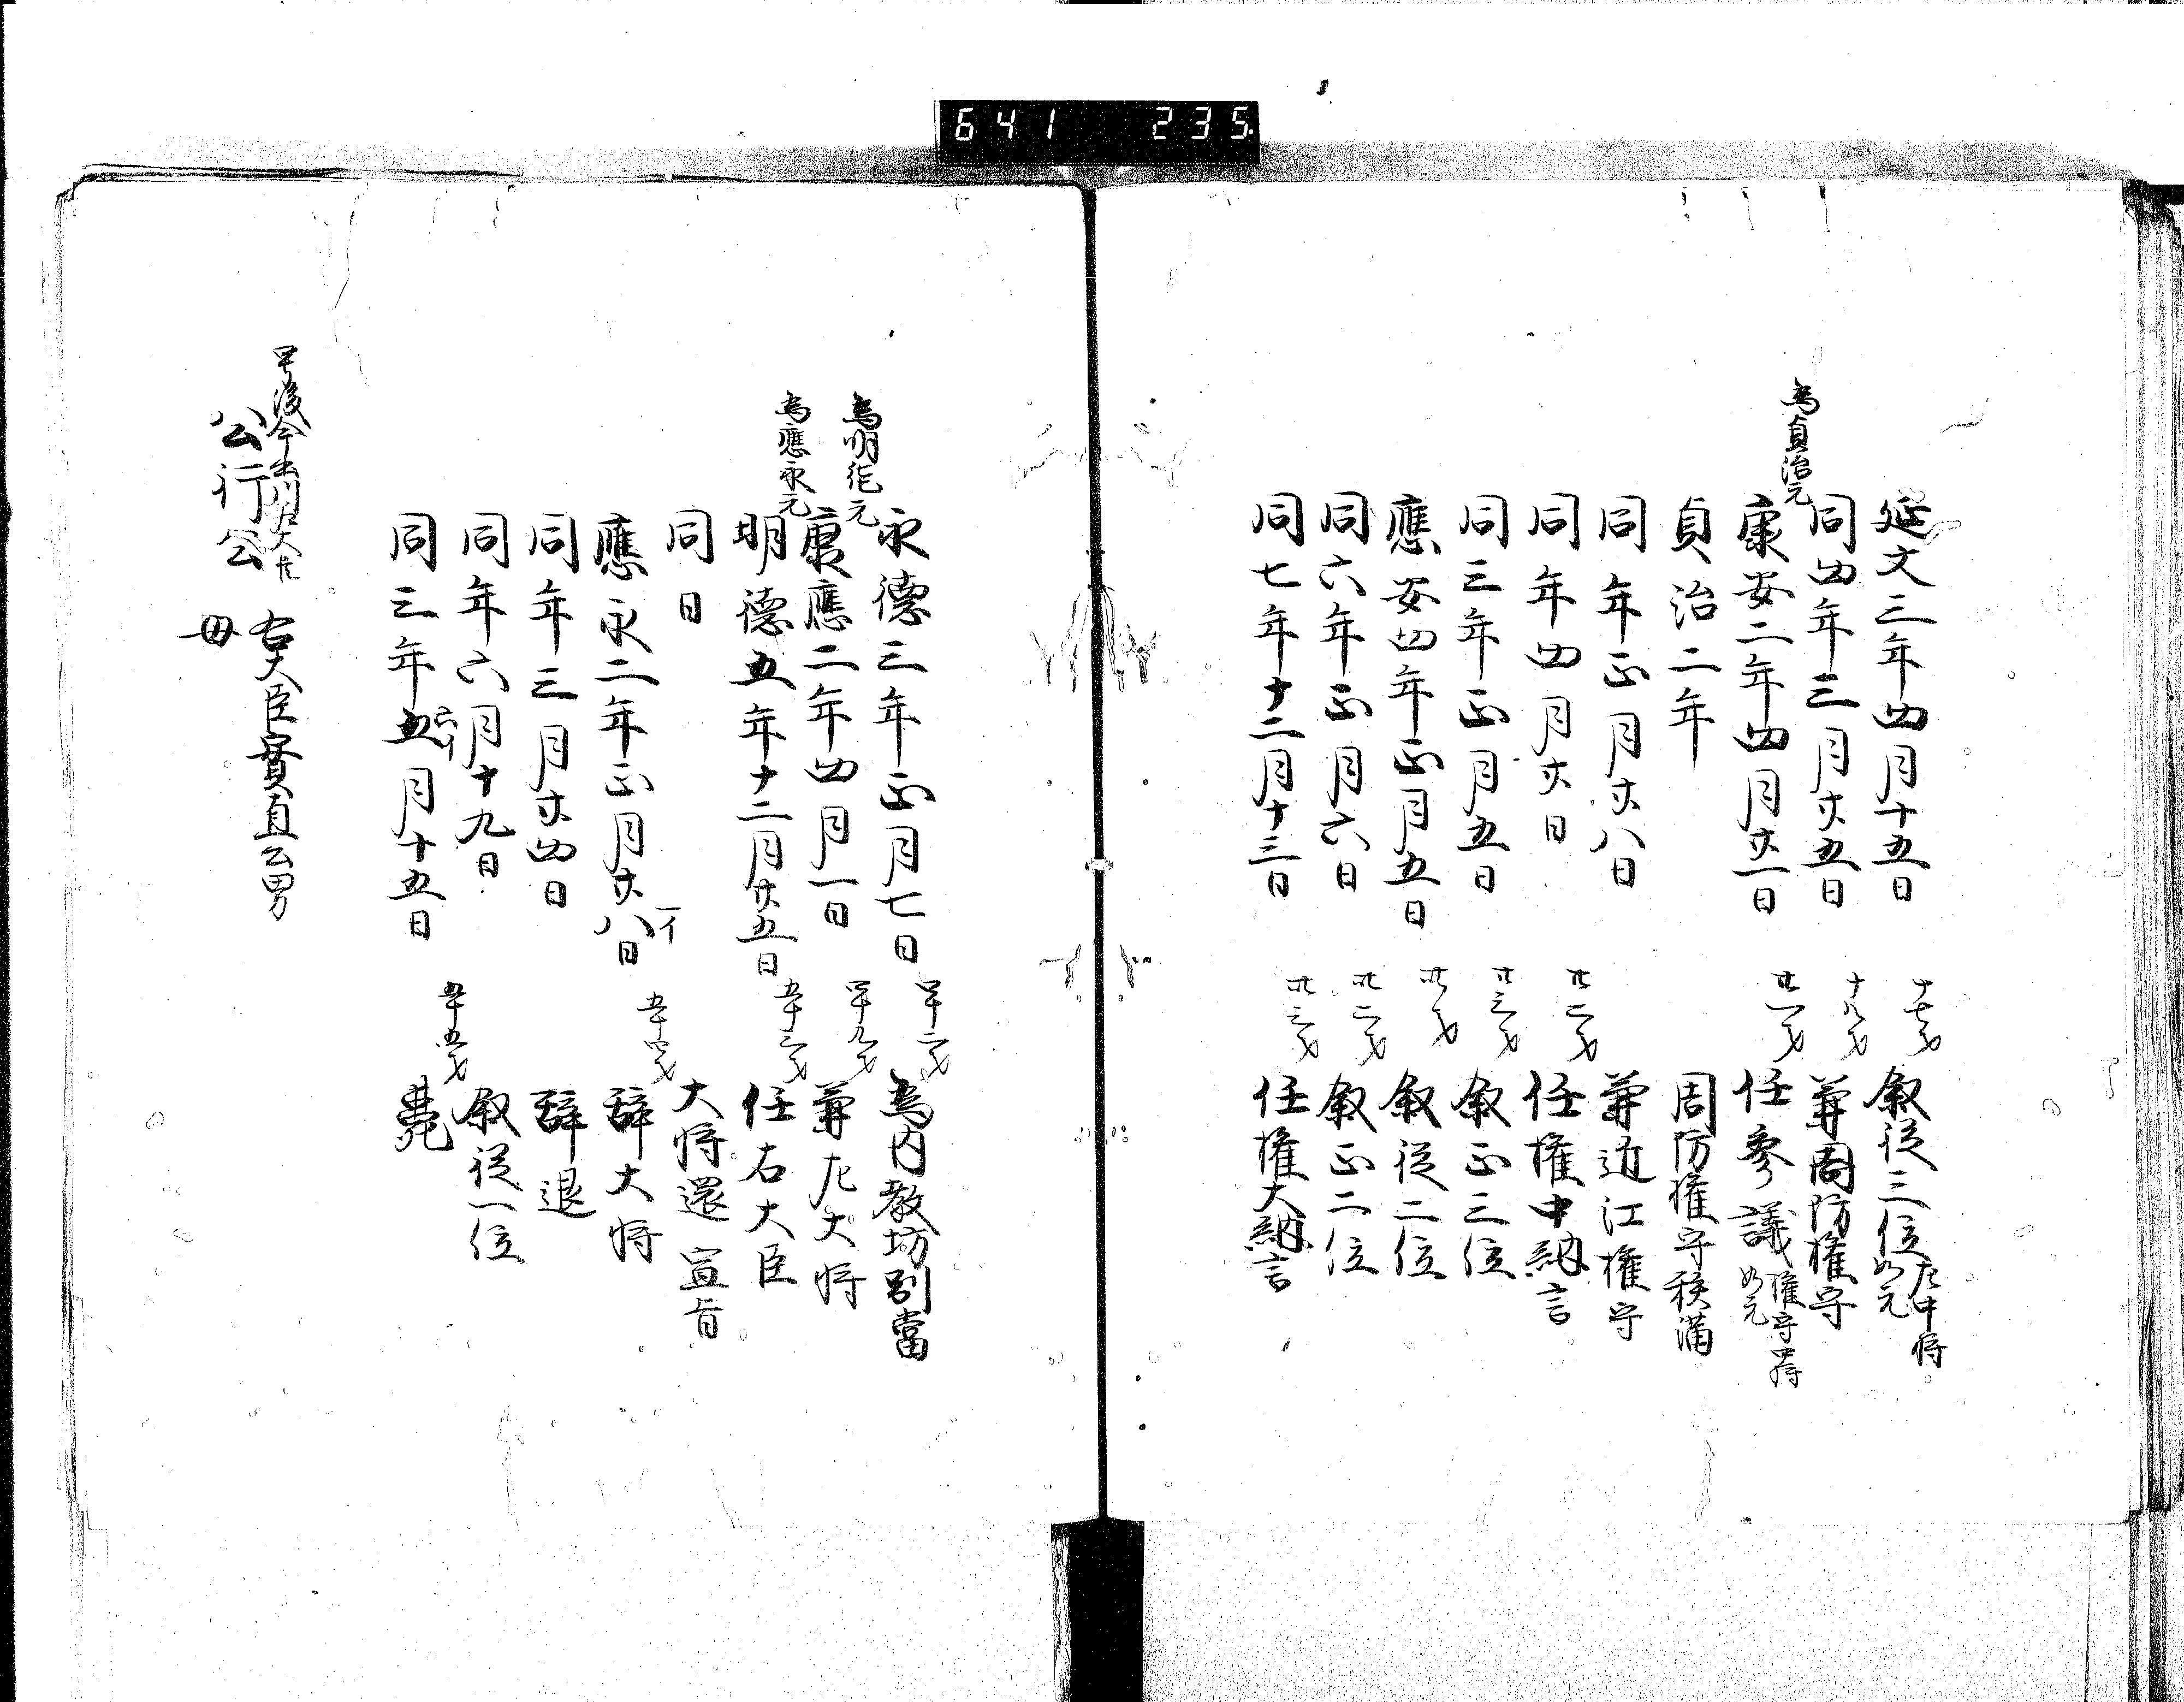 641 235
延文三年四月十五日 十七才 叙従三位左中将如元
同四年三月廿五日 十九才 兼周防権守
為貞治元
康安二年四月廿一日 廿一才 任参議権守中将如元
貞治二年 周防権守秩満
同年正月廿八日 兼近江権守
同年四月廿日 廿二才 任権中納言
同三年正月五日 廿三才 叙正三位
應安四年正月五日 卅才 叙従二位
同六年正月六日 卅二才 叙正二位
同七年十二月十三日 卅三才 任権大納言
永徳三年正月七日 四十二才 為内教坊別當
為明徳元
康應二年四月一日 四十九才 兼左大将
為應永元
明徳五年十二月廿五日 五十三才 任右大臣
同日 大将還宣旨
應永二年正月廿八日 一イ 五十四才 辞大将
同年三月廿四日 辞退
同年六月十九日 叙従一位
同三年五月十五日 六イ 五十五才 薨
号後今出川左大臣
公行公 右大臣實直公男
母